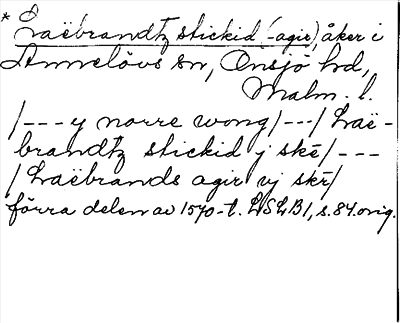 * Laëbrandtz stickid (-agir), åker i
Annelövs sn, Onsjö hd,
Malm. l.
/--- y norre wong /---/ Laë-
brandtz stickid j skē /---
/ Laëbrands agir vj skē /
förra delen av 1570-t. LSLB1, s. 84. orig.